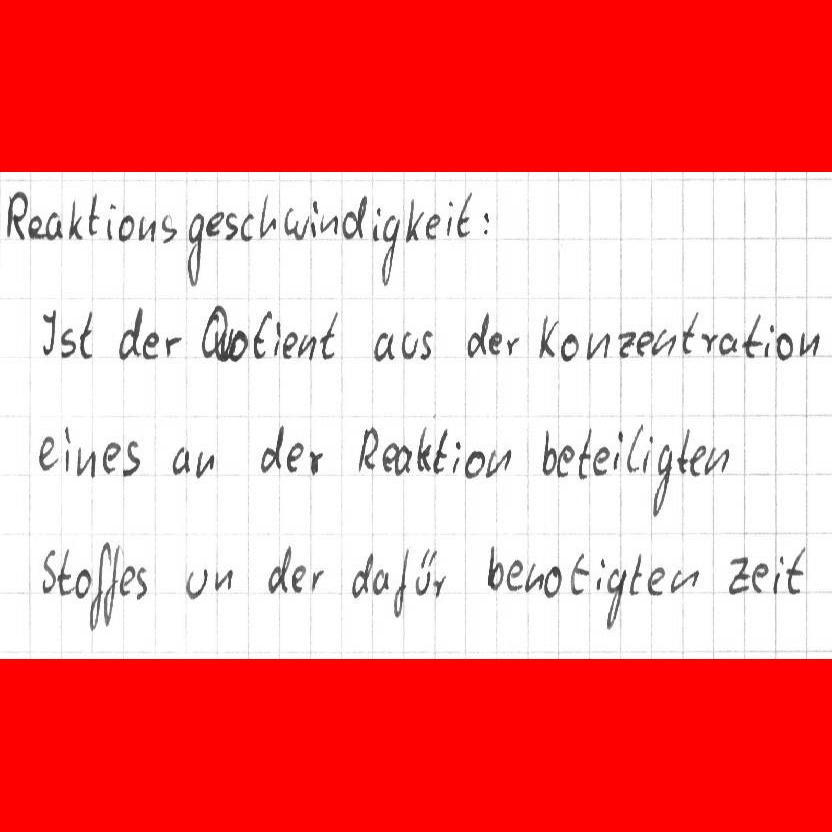 Reaktionsgeschwindigkeit:
Ist der Quotient aus der Konzentration
eines an der Reaktion beteiligten
Stoffes un der dafür benotigten Zeit